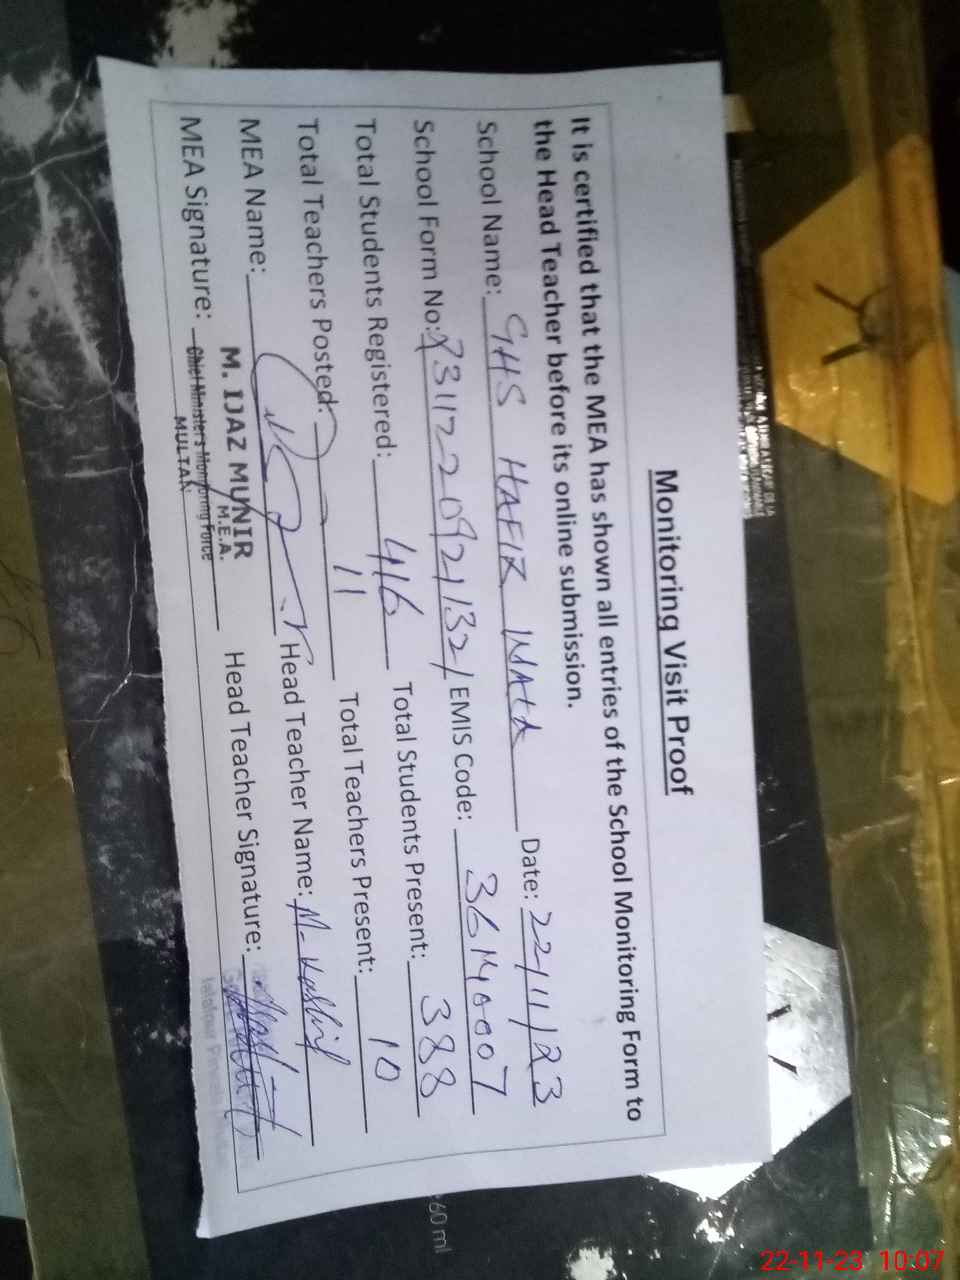 Monitoring Visit Proof
It is certified that the MEA has shown all entries of the School Monitoring Form to
the Head Teacher before its online submission.
School Name: GHS HAFIZ WALA Date: 22/11/23
School Form No: EMIS Code: 36140007
Total Students Registered: 416 Total Students Present: 388
Total Teachers Posted: 11 Total Teachers Present: 10
MEA Name: Head Teacher Name: M. Kashif
M. IJAZ MUNIR
M.E.A.
MEA Signature: Chief Minister's Monitoring Force Head Teacher Signature:
MULTAN
60 ml
22-11-23 10:07